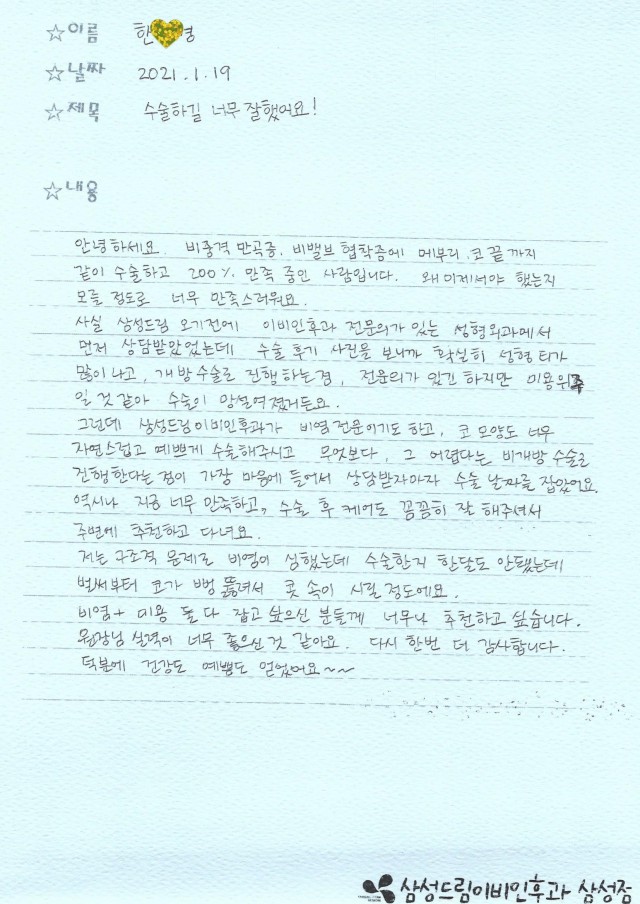 ☆이름 한 영
☆날짜 2021.1.19
☆제목 수술하길 너무 잘했어요!
☆내용
안녕하세요. 비중격 만곡증, 비밸브 협착증에 메부리, 코 끝 까지
같이 수술하고 200% 만족 중인 사람입니다. 왜 이제서야 했는지
모를 정도로 너무 만족스러워요.
사실 삼성드림 오기전에 이비인후과 전문의가 있는 성형외과에서
먼저 상담받았었는데 수술 후기 사진을 보니까 확실히 성형 티가
많이 나고, 개방수술로 진행하는점, 전문의가 있긴 하지만 미용위주
일 것 같아 수술이 망설여졌거든요.
그런데 삼성드림이비인후과가 비염 전문이기도 하고, 코 모양도 너무
자연스럽고 예쁘게 수술해주시고 무엇보다, 그 어렵다는 비개방 수술로
진행한다는 점이 가장 마음에 들어서 상담받자마자 수술 날짜를 잡았어요.
역시나 지금 너무 만족하고, 수술 후 케어도 꼼꼼히 잘 해주셔서
주변에 추천하고 다녀요.
저는 구조적 문제로 비염이 심했는데 수술한지 한달도 안됐는데
벌써부터 코가 뻥 뚫려서 콧 속이 시릴 정도에요.
비염+ 미용 둘 다 잡고 싶으신 분들께 너무나 추천하고 싶습니다.
원장님 실력이 너무 좋으신 것 같아요. 다시 한번 더 감사합니다.
덕분에 건강도 예쁨도 얻었어요~~
삼성드림이비인후과 삼성점